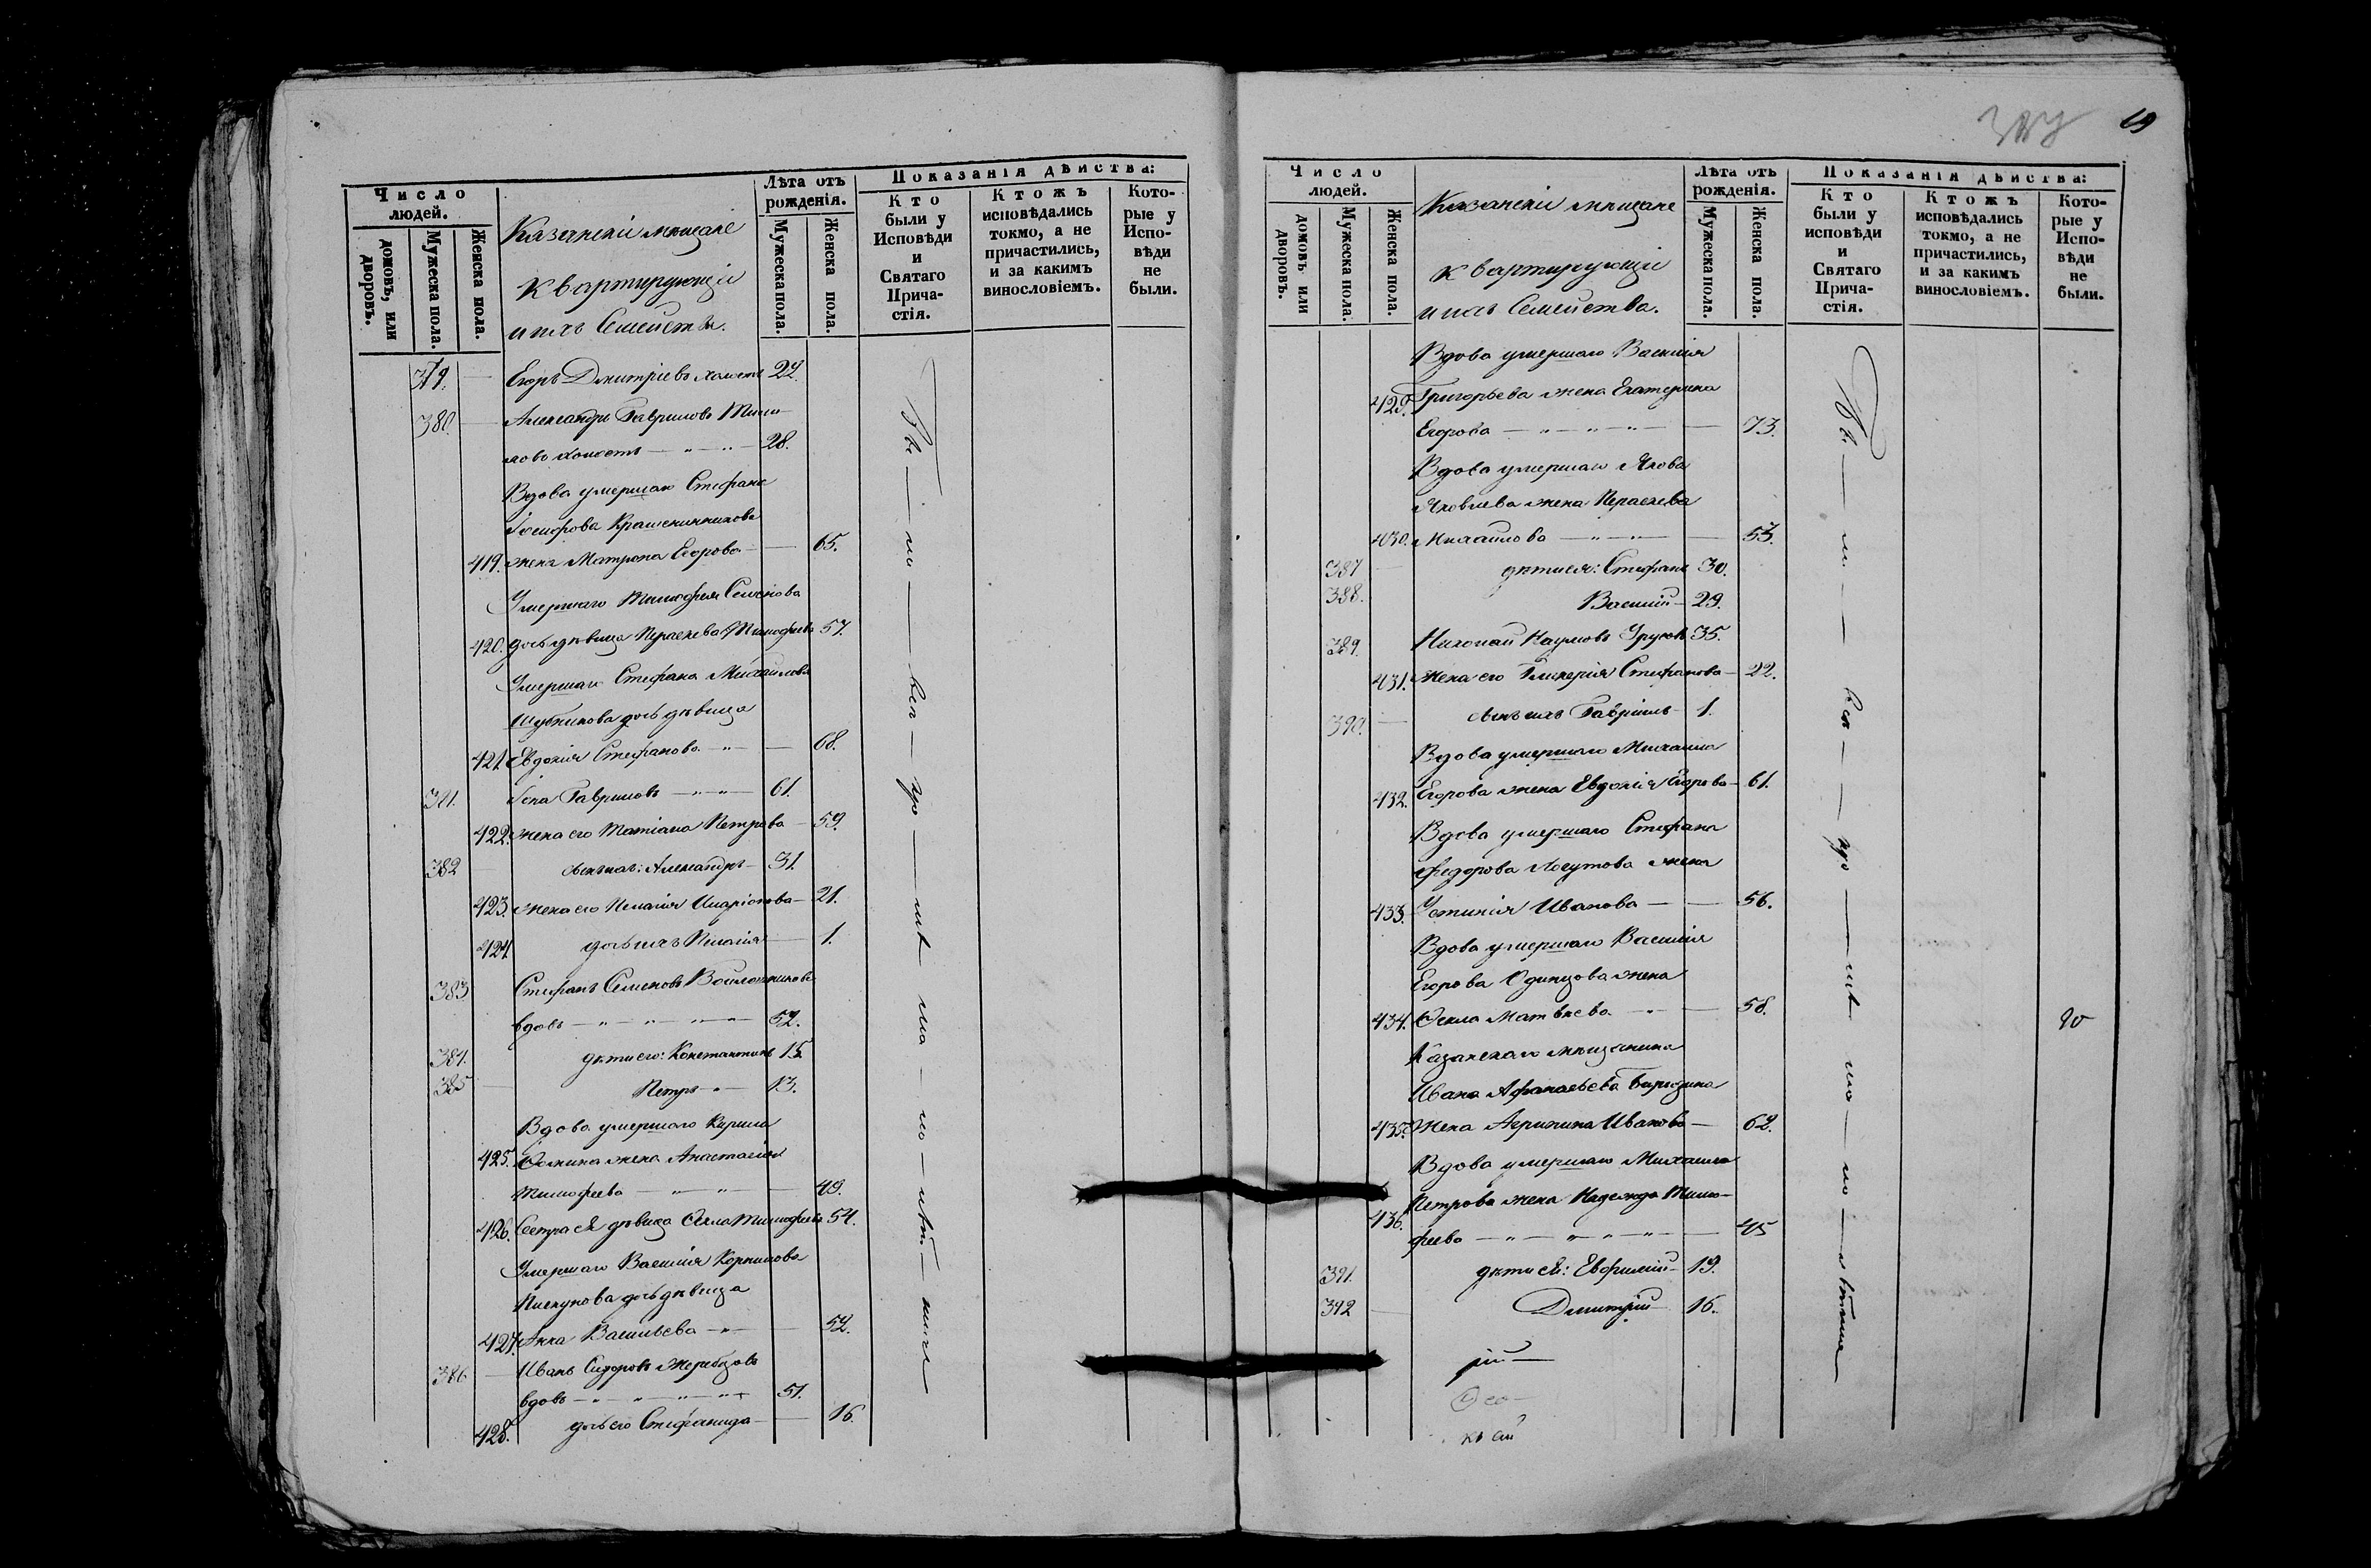 Число людей.
домовъ, или дворовъ.
Мужеска пола.
Женска пола.
Казанскіе мѣщане
квартирующіе
и ихъ Семейства.
Лѣта отъ рожденія.
Мужеска пола.
Женска пола.
Показанія дѣйства:
Кто были у Исповѣди и Святаго Прича-стія.
Ктожъ исповѣдались токмо, а не причастились, и за какимъ винословіемъ.
Кото-рые у Испо-вѣди не были.
379. Егоръ Дмитріевъ холостъ 22.
380. Александръ Гавриловъ Тими-
ловъ холостъ 28.
Вдова умершаго Стефана
Іосифова Крашенинникова
419. жена Матрона Егорова 65.
Умершаго Тимофея Семенова
420. дочь дѣвица Параскева Тимофеева 57.
Умершаго Стефана Михайлова
Шубникова дочь дѣвица
421. Евдокія Стефанова 68.
381. Іона Гавриловъ 61.
422. жена его Татіана Петрова 59.
382 сынъ ихъ: Александръ 31.
423. жена его Пелагія Иларіонова 21.
424 дочь ихъ Пелагія 1.
383 Стефанъ Семеновъ Войлошниковъ
вдовъ 52.
384. дѣти его: Константинъ 15.
385 Петръ 13.
Вдова умершаго Кирила
425. Фомина жена Анастасія
Тимофеева 49.
426. Сестра ея дѣвица Фекла Тимофеева 54.
Умершаго Василія Корнилова
Пискунова дочь дѣвица
427. Анна Васильева 52.
386 Иванъ Сидоровъ Жеребцовъ
вдовъ 51.
428. дочь его Стефанида 16.
19
Число людей.
домовъ или дворовъ.
Мужеска пола.
Женска пола.
Казанскіе мѣщане
квартирующіе
и ихъ Семейства.
Лѣта отъ рожденія.
Мужеска пола.
Женска пола.
Показанія дѣйства:
Кто были у исповѣди и Святаго Прича-стія.
Ктожъ исповѣдались токмо, а не причастились, и за какимъ винословіемъ.
Кото-рые у Испо-вѣди не были.
Вдова умершаго Василія
429. Григорьева жена Екатерина
Егорова 73.
Вдова умершаго Якова
Яковлева жена Параскева
430. Михайлова 53.
387 дѣти ея: Стефанъ 30.
388. Василій 29.
389. Николай Наумовъ Урусовъ 35.
431. жена его Гликерія Стефанова 22.
390. сынъ ихъ Гавріилъ 1.
Вдова умершаго Михаила
432. Егорова жена Евдокія Егорова 61.
Вдова умершаго Стефана
Федорова Лоскутова жена
433. Устинія Иванова 56.
Вдова умершаго Василія
Егорова Одинцова жена
434. Фекла Матвѣева 58.
Казанскаго мѣщанина
Ивана Афанасьева
435. Жена Агрипина Иванова 62.
Вдова умершаго Михаила
Петрова жена Надежда Тимо-
436. феева 45
391. дѣти ея: Евфимій 19.
392 Дмитрій 16.